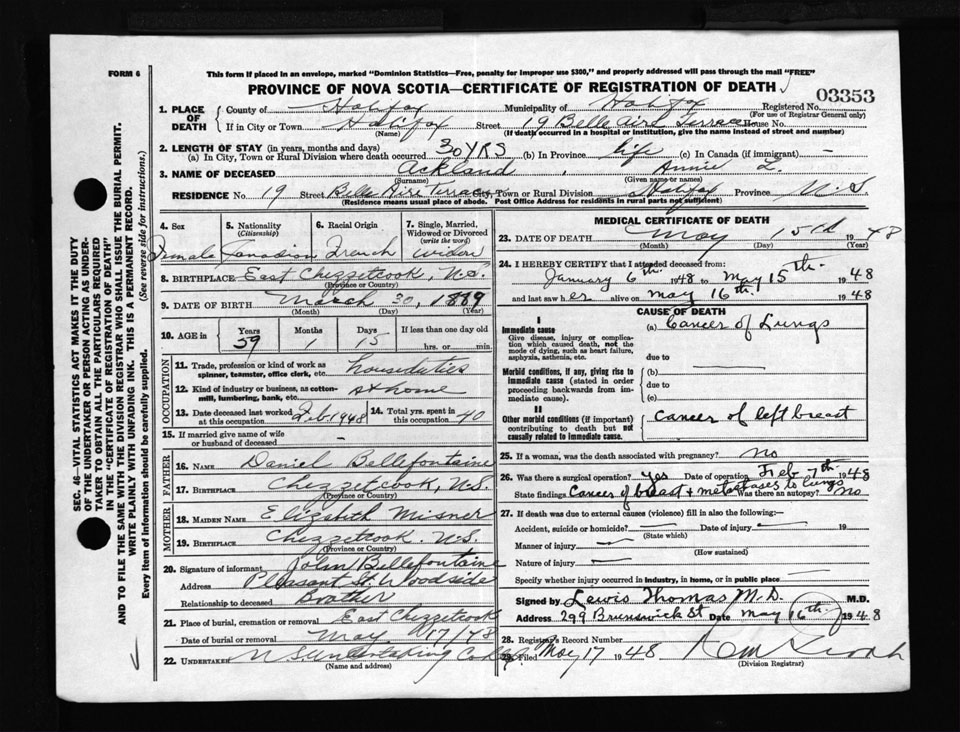 FORM 6
This form if placed in an envelope, marked "Dominion Statistics—Free, penalty for improper use $300," and properly addressed will pass through the mail "FREE"
PROVINCE OF NOVA SCOTIA—CERTIFICATE OF REGISTRATION OF DEATH
03353
1. PLACE OF DEATH
County of Halifax Municipality of Halifax Registered No.
(For use of Registrar General only)
If in City or Town Halifax Street 19 Belle Aire Terrace House No.
(Name) (If death occurred in a hospital or institution, give the name instead of street and number)
2. LENGTH OF STAY (in years, months and days)
(a) In City, Town or Rural Division where death occurred 30 YRS (b) In Province life (c) In Canada (if immigrant) —
3. NAME OF DECEASED Ackland, Annie L.
(Surname) (Given name or names)
RESIDENCE No. 19 Street Belle Aire Terrace City, Town or Rural Division Halifax Province N.S
(Residence means usual place of abode. Post Office Address for residents in rural parts not sufficient)
4. Sex 5. Nationality (Citizenship) 6. Racial Origin 7. Single, Married, Widowed or Divorced (write the word)
Female Canadian French widow
8. BIRTHPLACE East Chezzetcook, N.S.
(Province or Country)
9. DATE OF BIRTH March 30, 1889
(Month) (Day) (Year)
10. AGE in Years Months Days If less than one day old
59 1 15 hrs. or min.
OCCUPATION
11. Trade, profession or kind of work as spinner, teamster, office clerk, etc. housduties
12. Kind of industry or business, as cotton-mill, lumbering, bank, etc. at home
13. Date deceased last worked at this occupation Feb 1948 14. Total yrs. spent in this occupation 40
15. If married give name of wife or husband of deceased —
FATHER
16. NAME Daniel Bellefontaine
17. BIRTHPLACE Chezzetcook, N.S.
(Province or Country)
MOTHER
18. MAIDEN NAME Elizabeth Misner
19. BIRTHPLACE Chezzetcook N.S.
(Province or Country)
20. Signature of informant John Bellefontaine
Address Pleasant St. Woodside
Relationship to deceased Brother
21. Place of burial, cremation or removal East Chezzetcook
Date of burial or removal May 17/48
22. UNDERTAKER N S Undertaking Co
(Name and address)
MEDICAL CERTIFICATE OF DEATH
23. DATE OF DEATH May 15th 1948
(Month) (Day) (Year)
24. I HEREBY CERTIFY that I attended deceased from:
January 6th 1948 to May 15th 1948
and last saw her alive on May 16th 1948
CAUSE OF DEATH
I
Immediate cause (a) Cancer of Lungs
Give disease, injury or complication which caused death, not the mode of dying, such as heart failure, asphyxia, asthenia, etc.
due to
Morbid conditions, if any, giving rise to immediate cause (stated in order proceeding backwards from immediate cause).
(b) —
due to
(c)
II
Other morbid conditions (if important) contributing to death but not causally related to immediate cause. Cancer of left breast
25. If a woman, was the death associated with pregnancy? No
26. Was there a surgical operation? Yes Date of operation Feb 7th 1948
State findings Cancer of breast + metastases to lungs Was there an autopsy? No
27. If death was due to external causes (violence) fill in also the following:—
Accident, suicide or homicide? — Date of injury — 19
(State which)
Manner of injury —
(How sustained)
Nature of injury —
Specify whether injury occurred in industry, in home, or in public place —
Signed by Lewis Thomas M.D. M.D.
Address 299 Brunswick St Date May 16th 1948
28. Registrar's Record Number
29. Filed May 17 1948
(Division Registrar)
SEC. 46—VITAL STATISTICS ACT MAKES IT THE DUTY
OF THE UNDERTAKER OR PERSON ACTING AS UNDER-
TAKER TO OBTAIN ALL THE PARTICULARS REQUIRED
IN THE "CERTIFICATE OF REGISTRATION OF DEATH"
AND TO FILE THE SAME WITH THE DIVISION REGISTRAR WHO SHALL ISSUE THE BURIAL PERMIT.
WRITE PLAINLY WITH UNFADING INK. THIS IS A PERMANENT RECORD.
Every item of information should be carefully supplied. (See reverse side for instructions.)